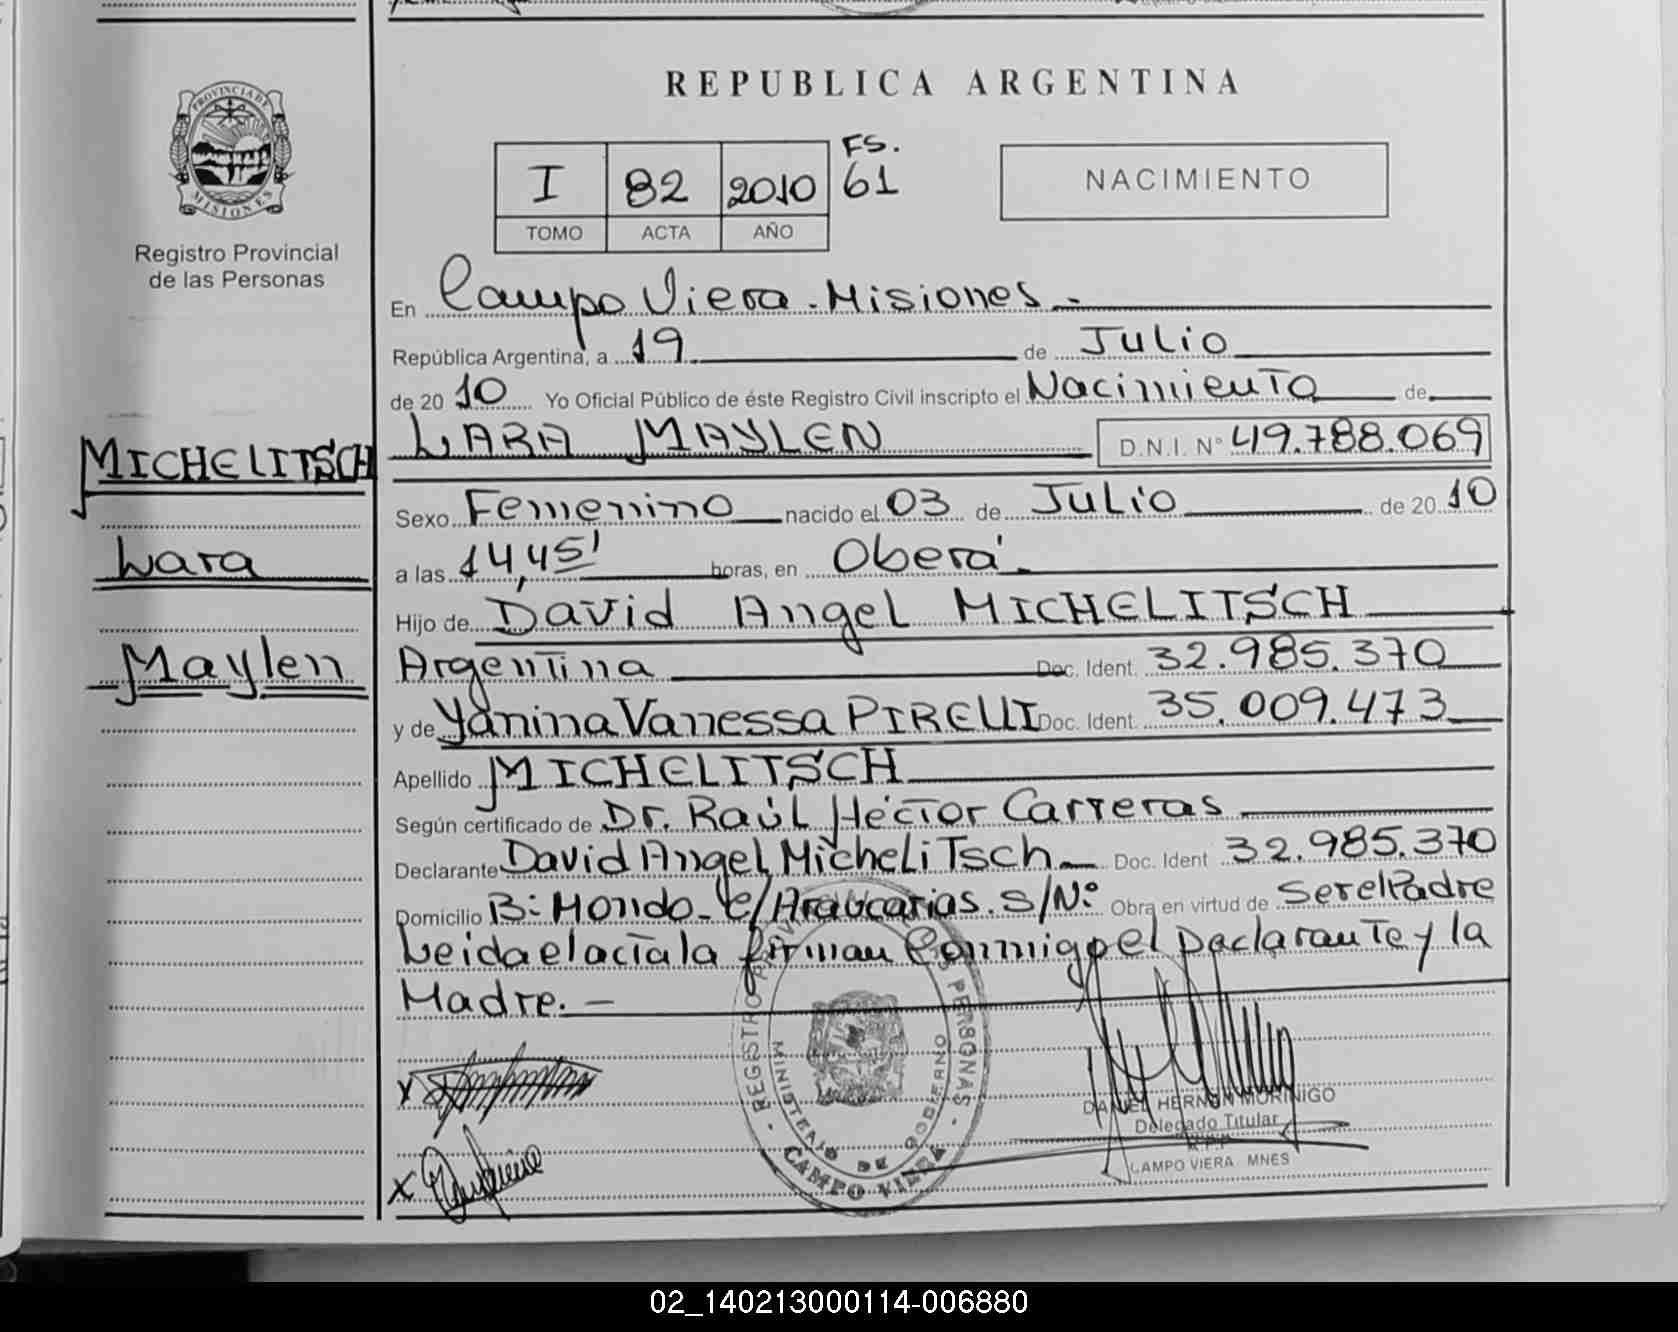 REPUBLICA ARGENTINA
PROVINCIA DE MISIONES
Registro Provincial
de las Personas
FS.
I 82 2010 61
TOMO ACTA AÑO
NACIMIENTO
En Campo Viera - Misiones -
República Argentina, a 19 de Julio
de 20 10 Yo Oficial Público de éste Registro Civil inscripto el Nacimiento de
LARA MAYLEN D.N.I. N° 49.788.069
MICHELITSCH
Lara
Maylen
Sexo Femenino nacido el 03 de Julio de 20 10
a las 14,45' horas, en Oberá.
Hijo de David Angel MICHELITSCH
Argentina Doc. Ident. 32.985.370
y de Yanina Vanessa PIRELLI Doc. Ident. 35.009.473
Apellido MICHELITSCH
Según certificado de Dr. Raúl Héctor Carreras
Declarante David Angel MicheliTsch Doc. Ident 32.985.370
Domicilio B: Mondo - C/Araucarias. S/N° Obra en virtud de Ser el Padre
Leida el acta la firman Conmigo el Declarante y la
Madre. -
REGISTRO PROVINCIAL DE LAS PERSONAS - CAMPO VIERA -
MINISTERIO DE GOBIERNO
X
X
DANIEL HERNAN MORINIGO
Delegado Titular
R.P.P
CAMPO VIERA MNES
02_140213000114-006880